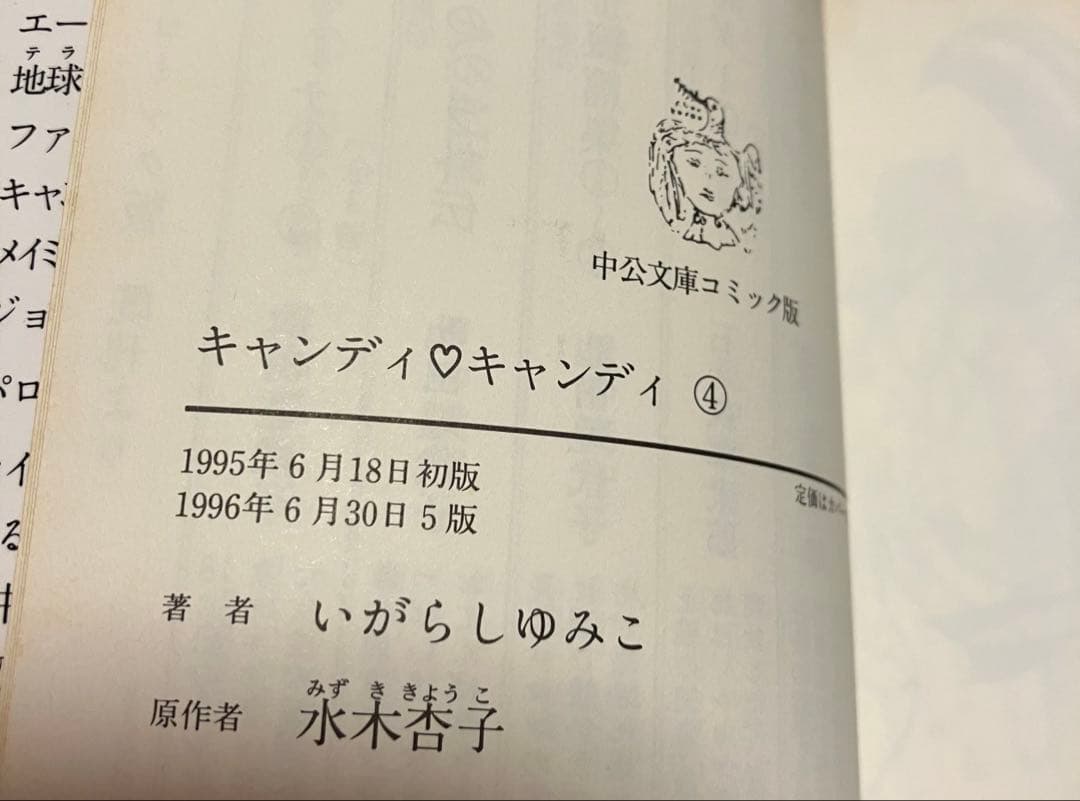 エー
テラ
地球
ファ
キャ
メイミ
ジョ
パロ
イ
る
中公文庫コミック版
キャンディ♡キャンディ ④
1995年6月18日初版
1996年6月30日5版
定価はカバー
著者 いがらしゆみこ
みずききようこ
原作者 水木杏子